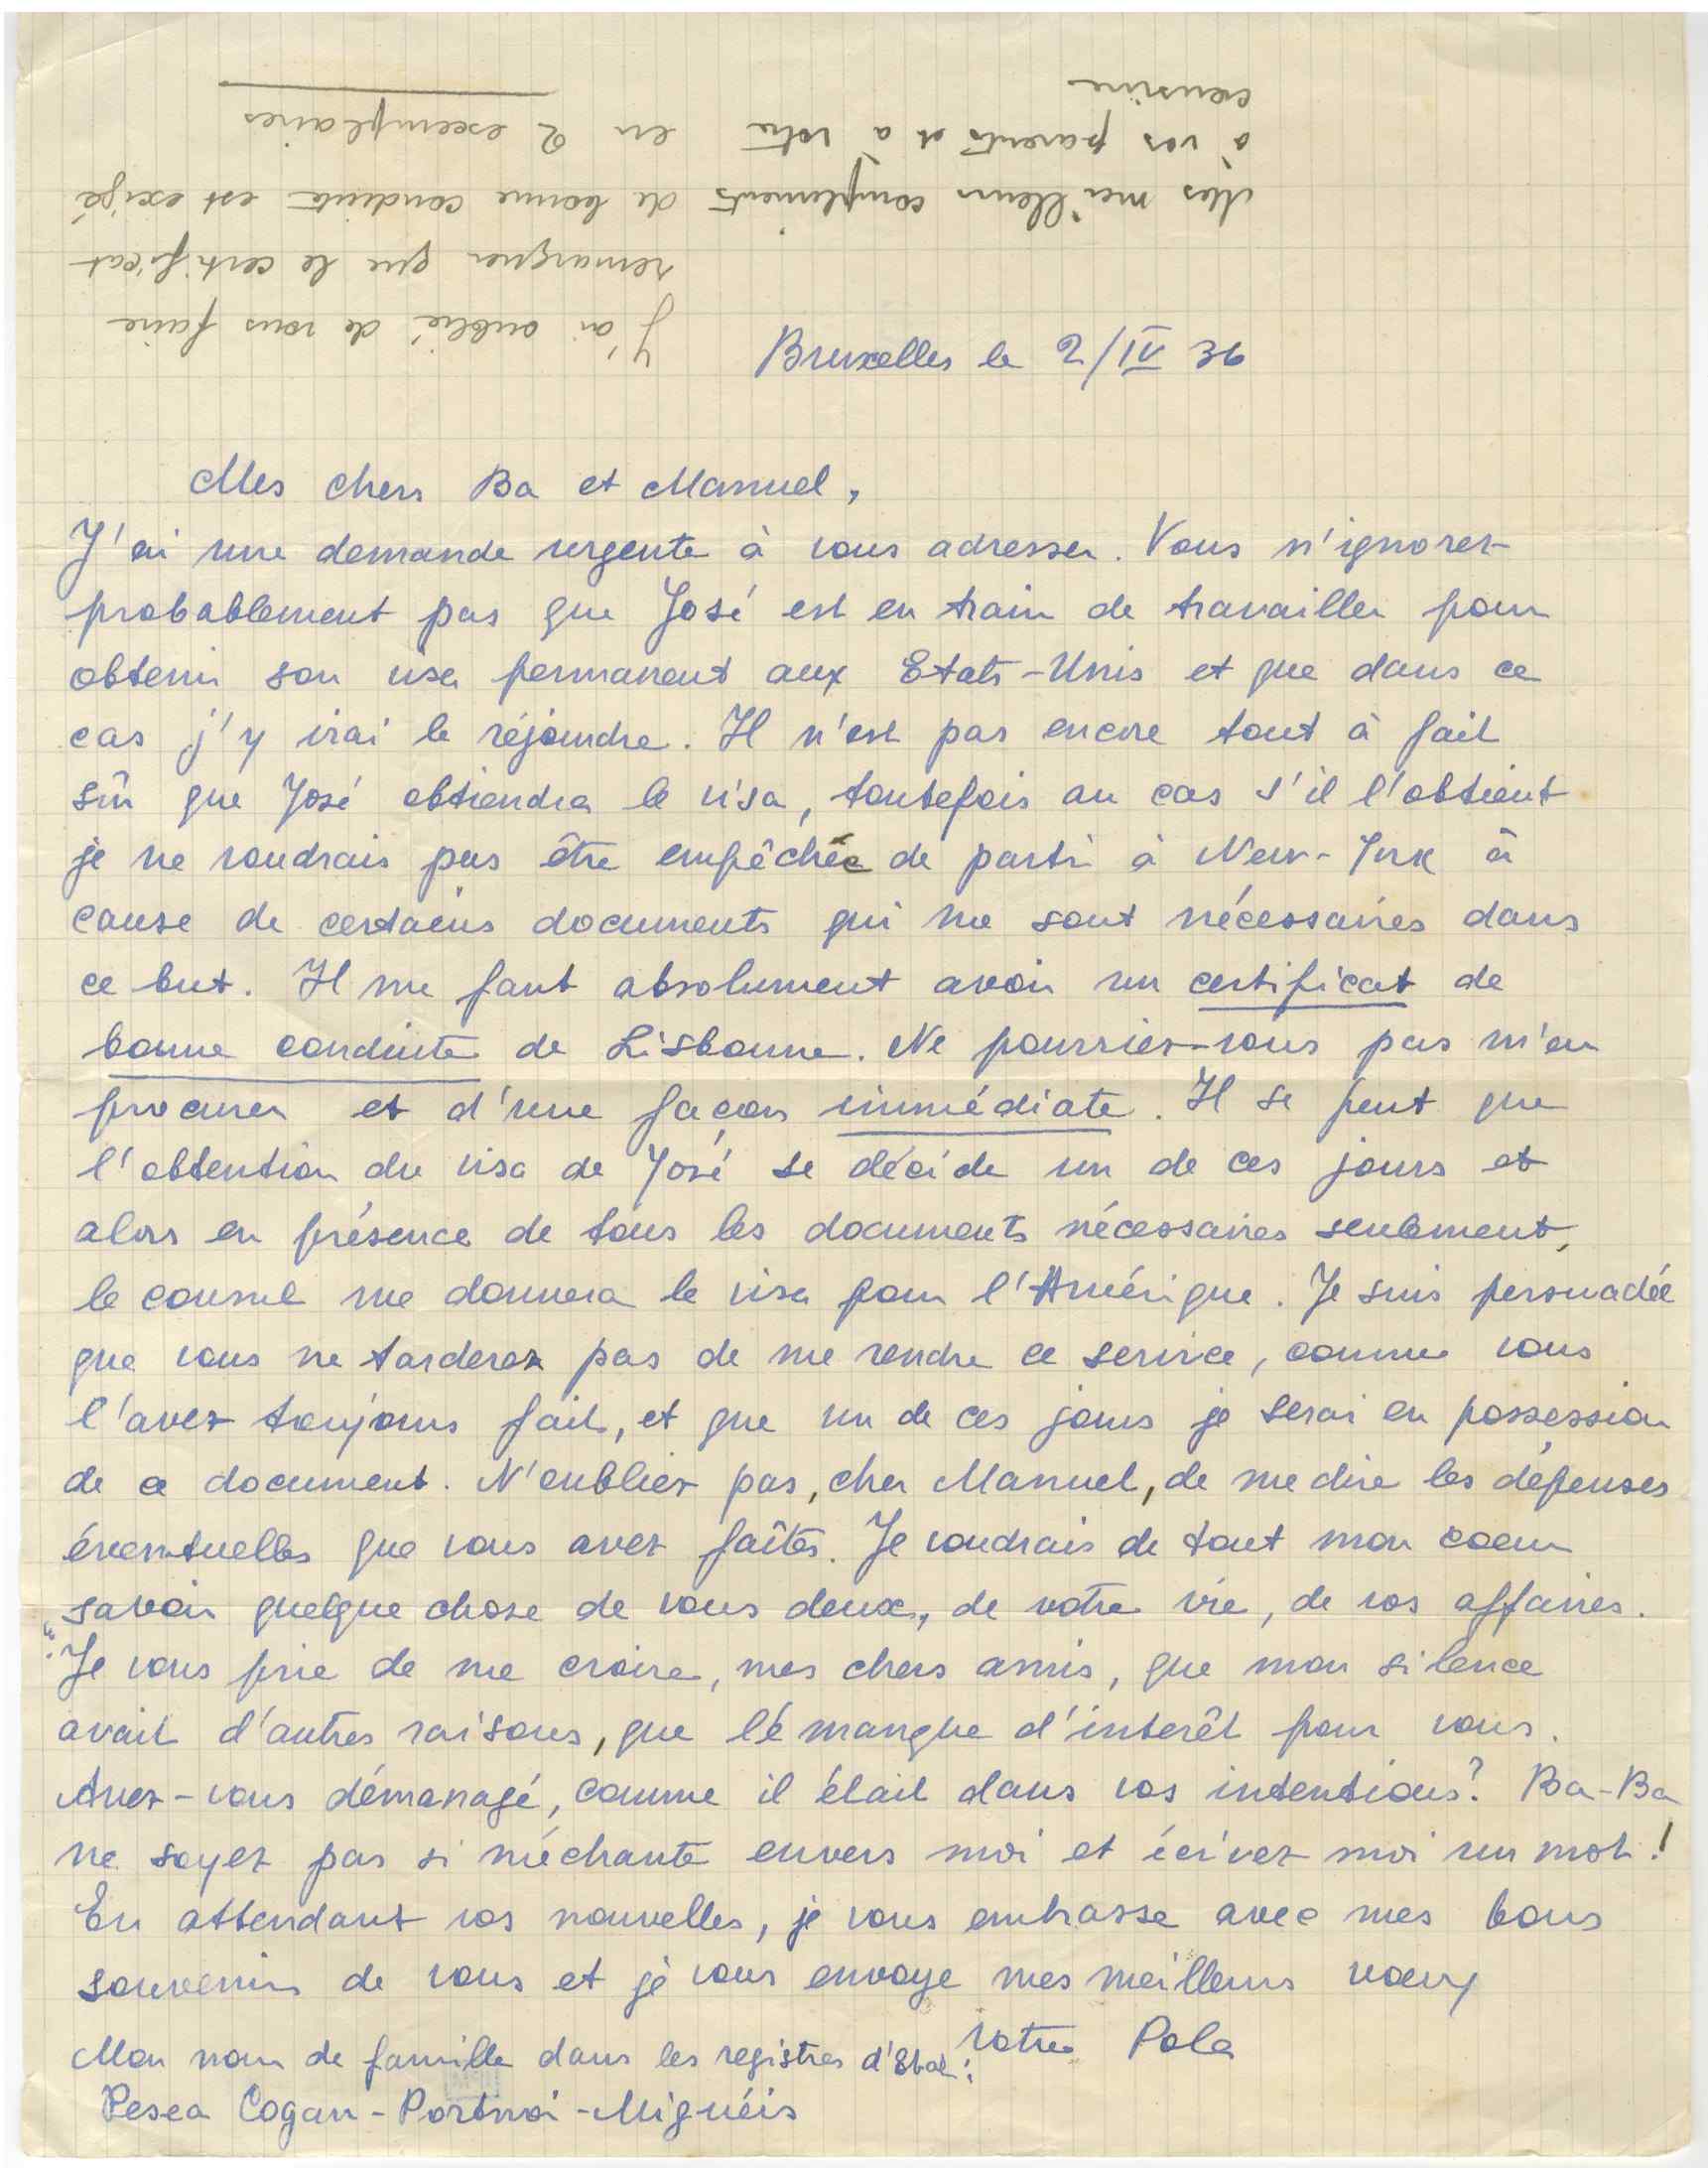 Bruxelles le 2/IV 36
Mes chers Ba et Manuel,
J'ai une demande urgente à vous adresser. Vous n'ignorez
probablement pas que José est en train de travailler pour
obtenir son visa permanent aux Etats-Unis et que dans ce
cas j'y irai le réjoindre. Il n'est pas encore tout à fait
sûr que José obtiendra le visa, toutefois au cas s'il l'obtient
je ne voudrais pas être empêchée de partir à New-York à
cause de certains documents qui me sont nécessaires dans
ce but. Il me faut absolument avoir un certificat de
bonne conduite de Lisbonne. Ne pourriez-vous pas m'en
procurer et d'une façon immédiate. Il se peut que
l'obtention du visa de José se décide un de ces jours et
alors en présence de tous les documents nécessaires seulement,
le consul me donnera le visa pour l'Amérique. Je suis persuadée
que vous ne tarderez pas de me rendre ce service, comme vous
l'avez toujours fait, et que un de ces jours je serai en possession
de ce document. N'oubliez pas, cher Manuel, de me dire les dépenses
éventuelles que vous avez faîtes. Je voudrais de tout mon coeur
savoir quelque chose de vous deux, de votre vie, de vos affaires.
Je vous prie de me croire, mes chers amis, que mon silence
avait d'autres raisons, que le manque d'interêt pour vous.
Avez-vous démanagé, comme il était dans vos intentions? Ba-Ba
ne soyez pas si méchante envers moi et écrivez moi un mot!
En attendant vos nouvelles, je vous embrasse avec mes bons
souvenirs de vous et je vous envoye mes meilleurs voeux
Votre Pola
Mon nom de famille dans les registres d'Etat:
Pesea Cogan-Portnoi-Miguéis
J'ai oublié de vous faire
remarquer que le certificat
de bonne conduite est exigé
en 2 exemplaires
Mes meilleurs compliments
à vos parents et à votre
cousine